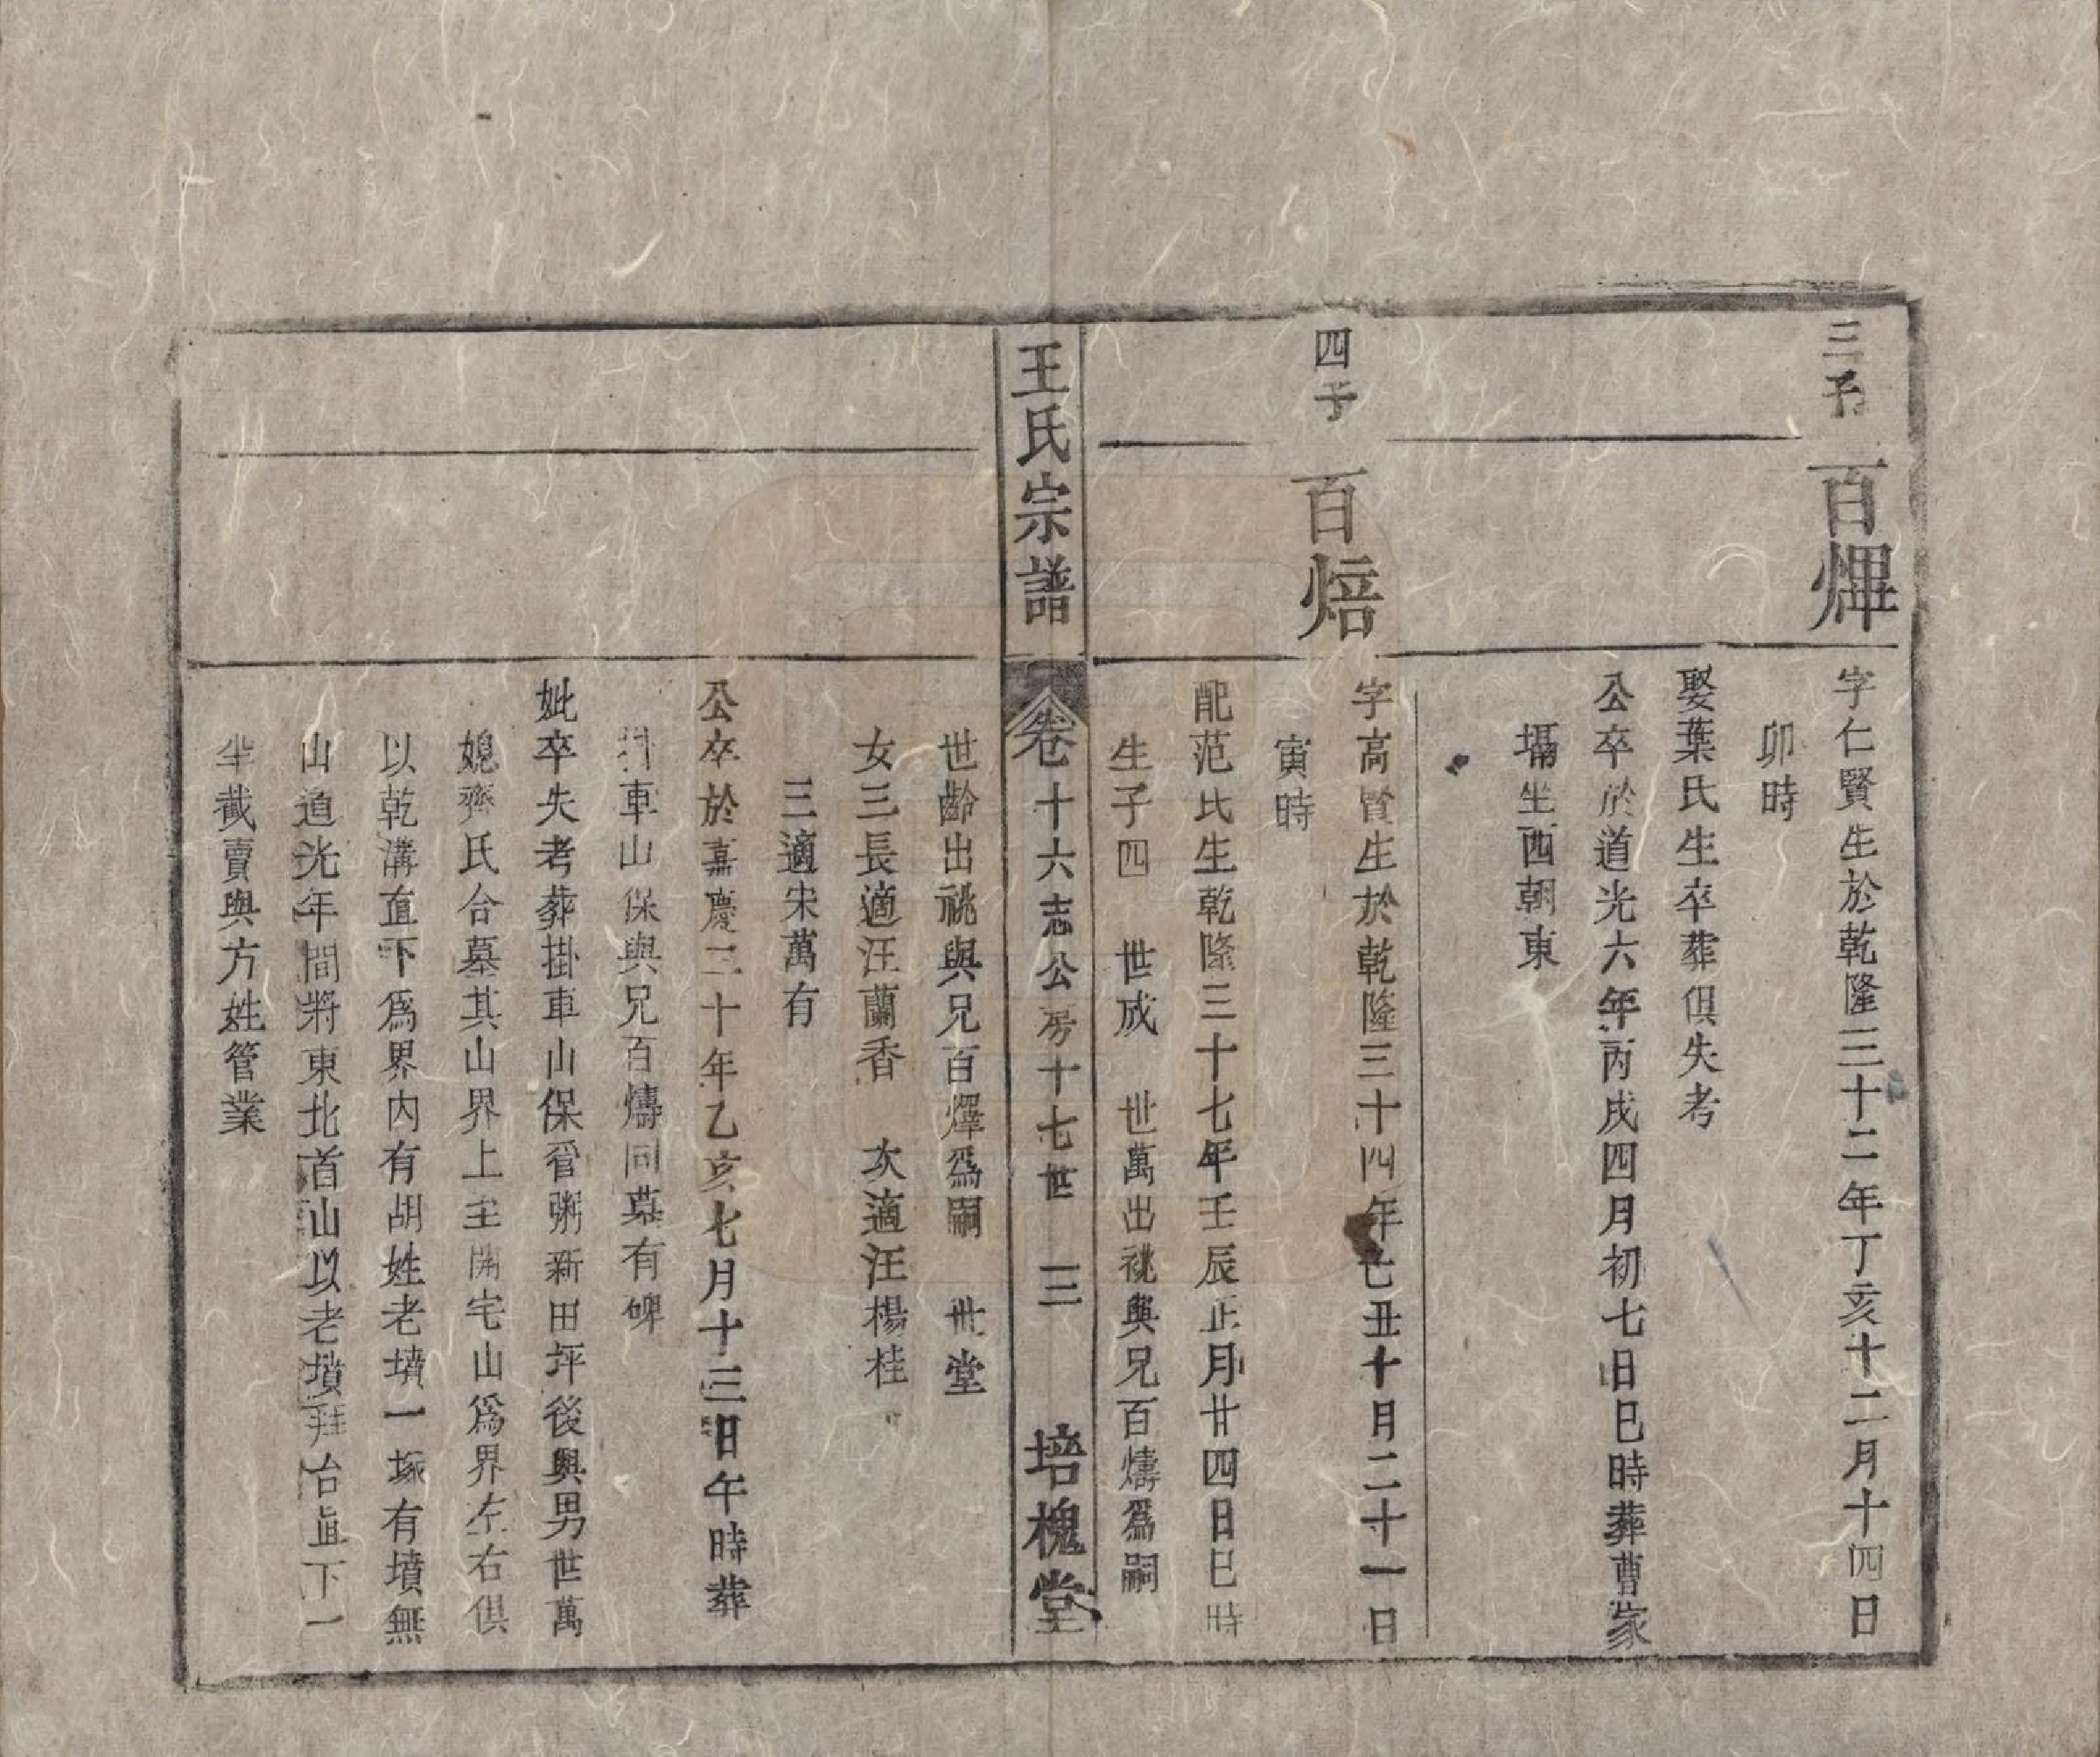 三子
百燡
字仁賢生於乾隆三十二年丁亥十二月十四日
卯時
娶葉氏生卒葬俱失考
公卒於道光六年丙戌四月初七日巳時葬曹家
塥坐西朝東
四子
百焙
字高賢生於乾隆三十四年己丑十月二十一日
寅時
配范氏生乾隆三十七年壬辰正月廿四日巳時
生子四 世成 世萬出祧與兄百燽爲嗣
王氏宗譜
卷十六志公房十七世 三 培槐堂
世齡出祧與兄百燡爲嗣 世堂
女三長適汪蘭香 次適汪楊桂
三適宋萬有
公卒於嘉慶二十年乙亥七月十三日午時葬
掛車山保與兄百燽同墓有碑
妣卒失考葬掛車山保晉粥新田坪後與男世萬
媳齊氏合墓其山界上至開宅山爲界左右俱
以乾溝直下爲界內有胡姓老墳一塚有墳無
山道光年間將東北首山以老墳拜台直下一
半截賣與方姓管業